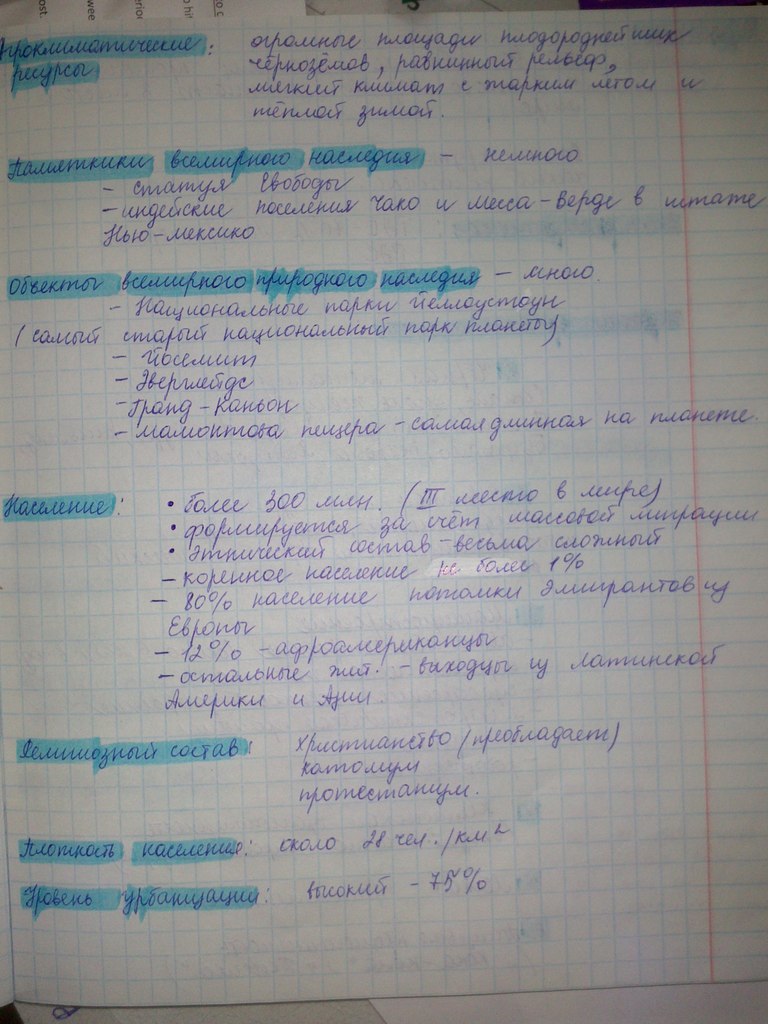 Агроклиматические: огромные площади плодороднейших
ресурсы чернозёмов, равнинный рельеф,
мягкий климат с жарким летом и
тёплой зимой.
Памятники всемирного наследия – немного
– статуя Свободы
– индейские поселения Чако и Меса-Верде в штате
Нью-Мексико
Объекты всемирного природного наследия – много.
– Национальные парки Йеллоустоун
(самый старый национальный парк планеты)
– Йосемит
– Эверглейдс
– Гранд-Каньон
– Мамонтова пещера – самая длинная на планете.
Население: • более 300 млн. (III место в мире)
• формируется за счёт массовой миграции
• этнический состав – весьма сложный
– коренное население не более 1%
– 80% население потомки эмигрантов из
Европы
– 12% – афроамериканцы
– остальные жит. – выходцы из Латинской
Америки и Азии.
Религиозный состав: христианство (преобладает)
католиц
протестанцим.
Плотность населения: около 28 чел./км²
Уровень урбанизации: высокий – 75%